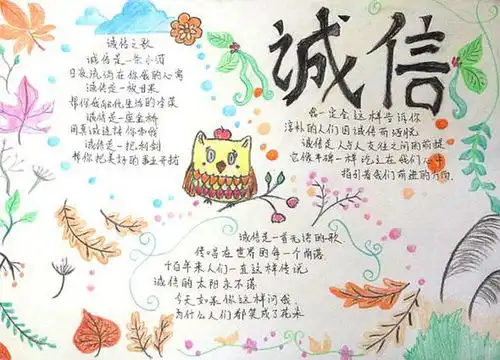 诚信
诚信之歌
诚信是一条小河
日夜流淌在你我的心窝
诚信是一枚甘果
诚信是一座金桥
用真诚连接你和我
诚信是一把利剑
我一定会这样告诉你
淳朴的人们因诚信而活脱
诚信是人与人交往之间的前提
它像丰碑一样屹立在我们心中
指引着我们前进的方向
诚信是一首无语的歌
传唱在世界的每一个角落
千百年来人们一直这样传说
诚信的太阳永不落
今天如果你这样问我
为什么人们都笑成了花朵